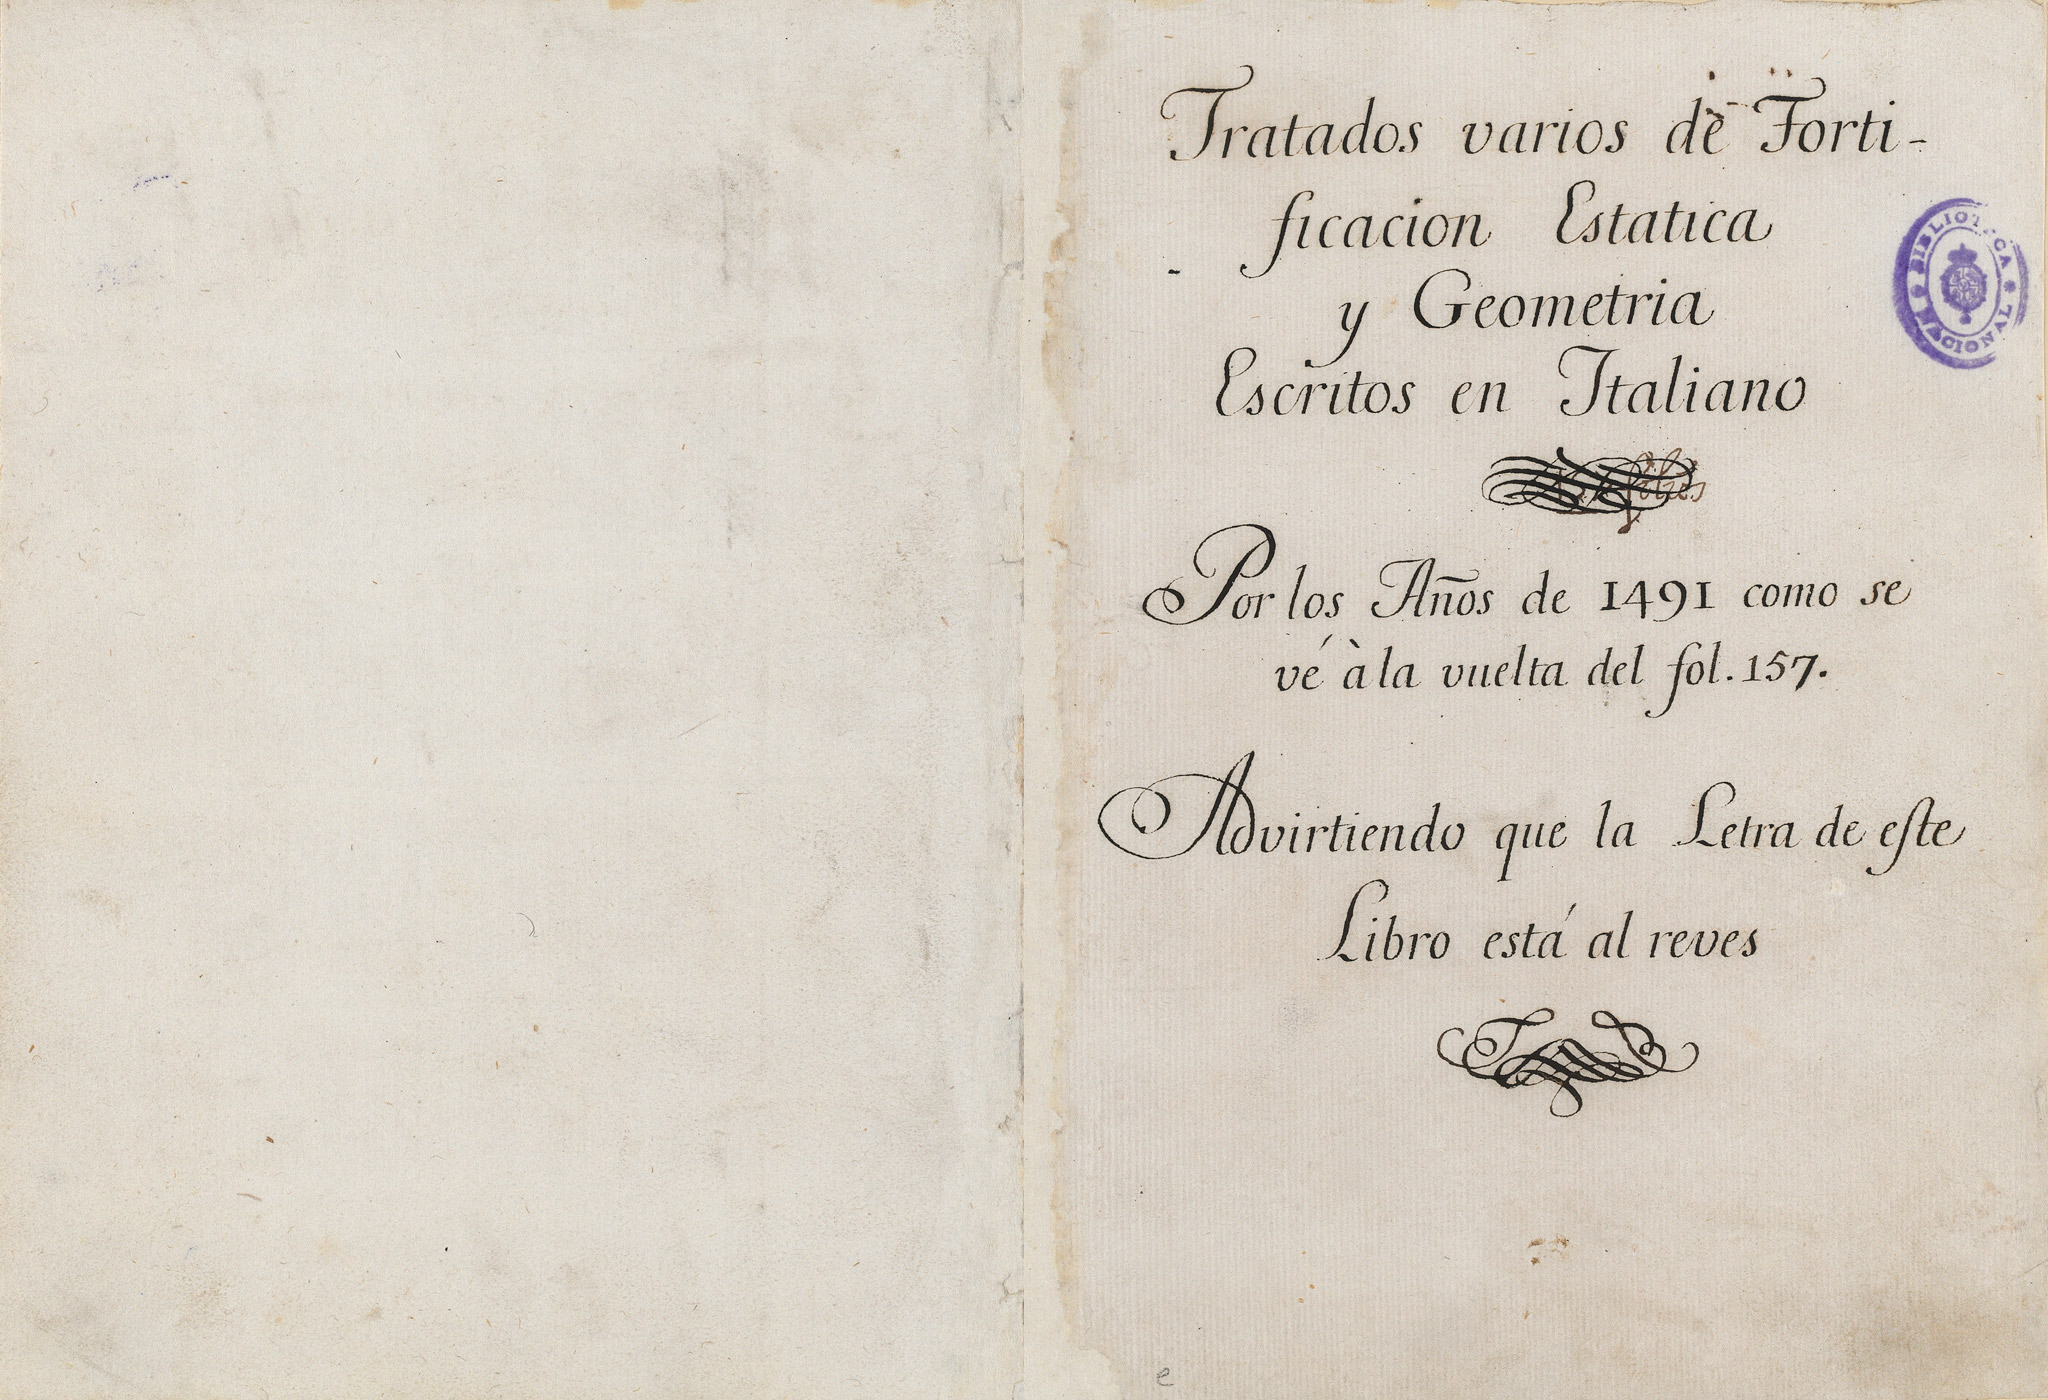 Tratados varios de Forti-
ficacion Estatica
y Geometria
Escritos en Italiano
Por los Años de 1491 como se
vé à la vuelta del fol. 157.
Advirtiendo que la Letra de este
Libro está al reves
BIBLIOTECA NACIONAL
e